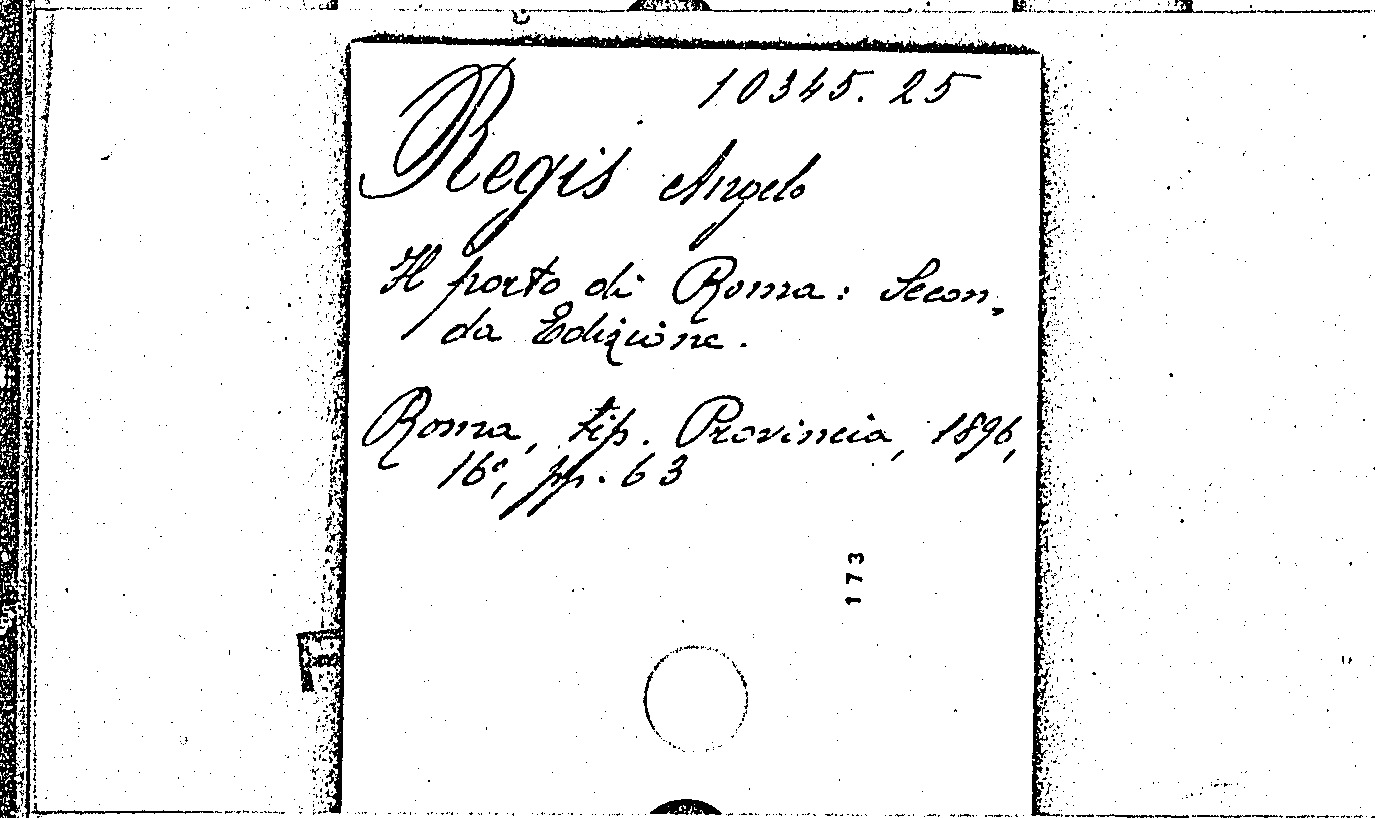 10345.25
Regis Angelo
Il porto di Roma: Secon-
da Edizione.
Roma, tip. Provincia, 1896,
16°, pp. 63
173